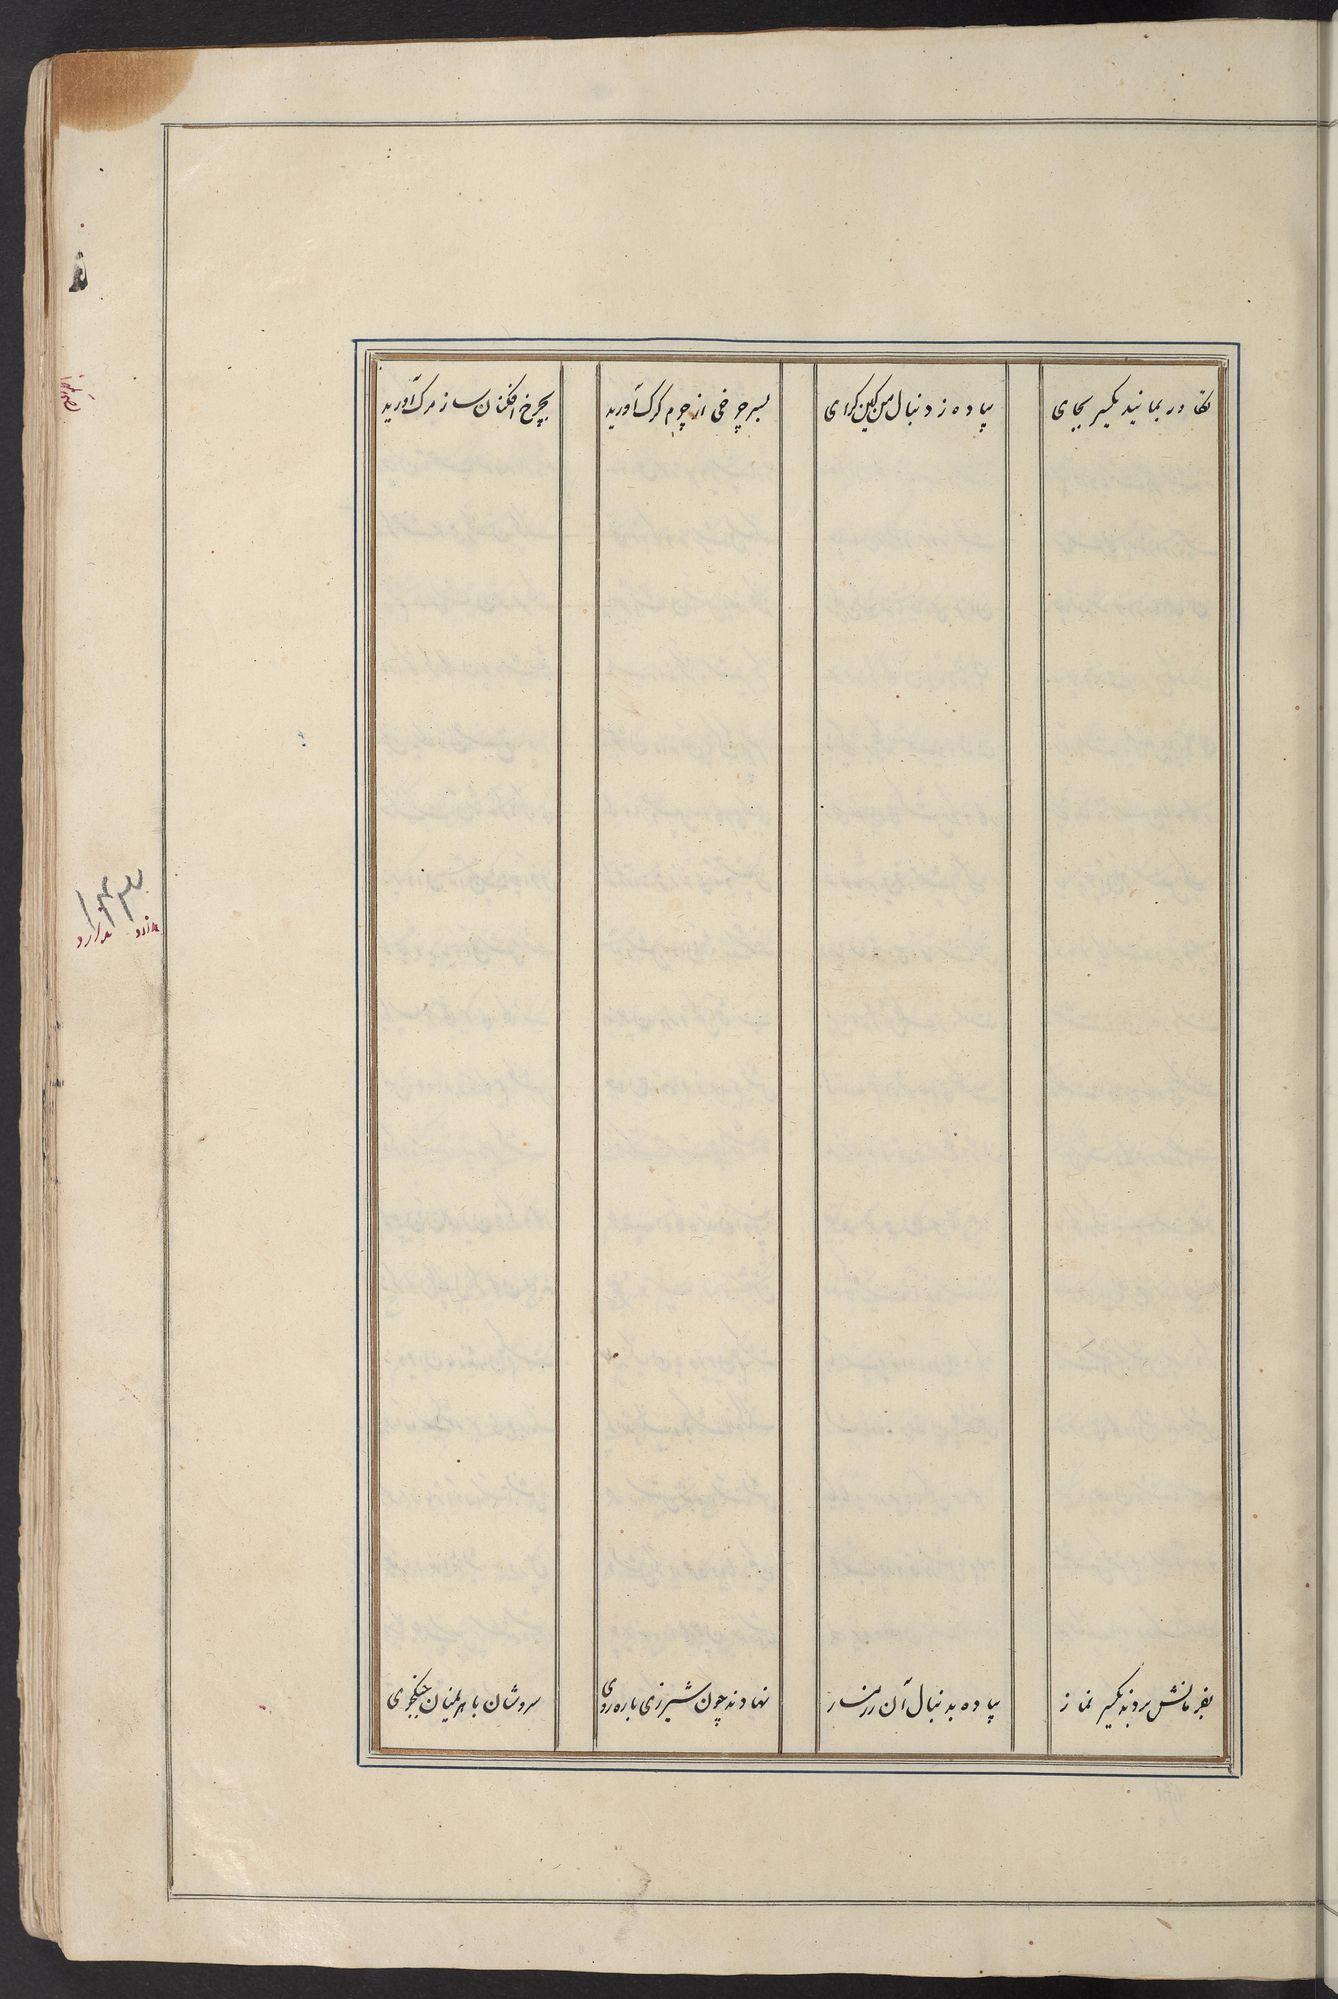 تکاور بمانید یکسر بجای
پیاده ز دنبال من کین کرای
بسر چوخی از چرم کرک آورید
بچرخ افکنان ساز مرک آورید
بفرمانش بردند یکسر نماز
پیاده بدنبال آن رزمساز
نهادند چون شیر زی باره روی
سروشان با اهریمنان جنکجوی
۱۴۳
ندارد